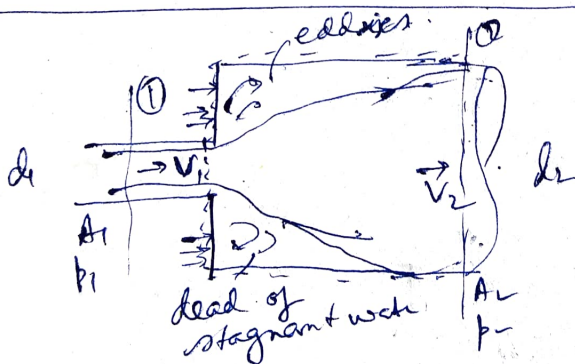 eddies.
①
②
d₁
→ V₁
→ V₂
d₂
A₁
p₁
A₂
p₂
dead of
stagnant water